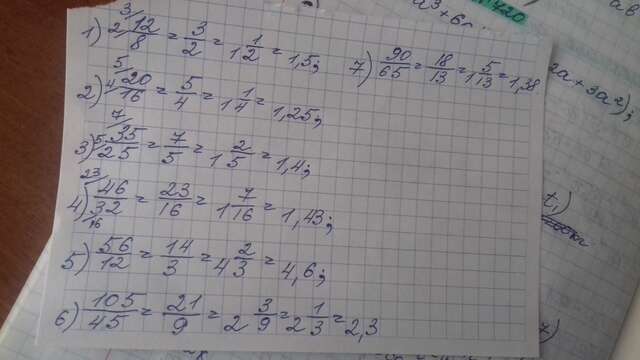 1) 12/8 = 3/2 = 1 1/2 = 1,5;
2) 20/16 = 5/4 = 1 1/4 = 1,25;
3) 35/25 = 7/5 = 1 2/5 = 1,4;
4) 46/32 = 23/16 = 1 7/16 = 1,43;
5) 56/12 = 14/3 = 4 2/3 = 4,6;
6) 105/45 = 21/9 = 2 3/9 = 2 1/3 = 2,3
7) 90/65 = 18/13 = 1 5/13 = 1,38